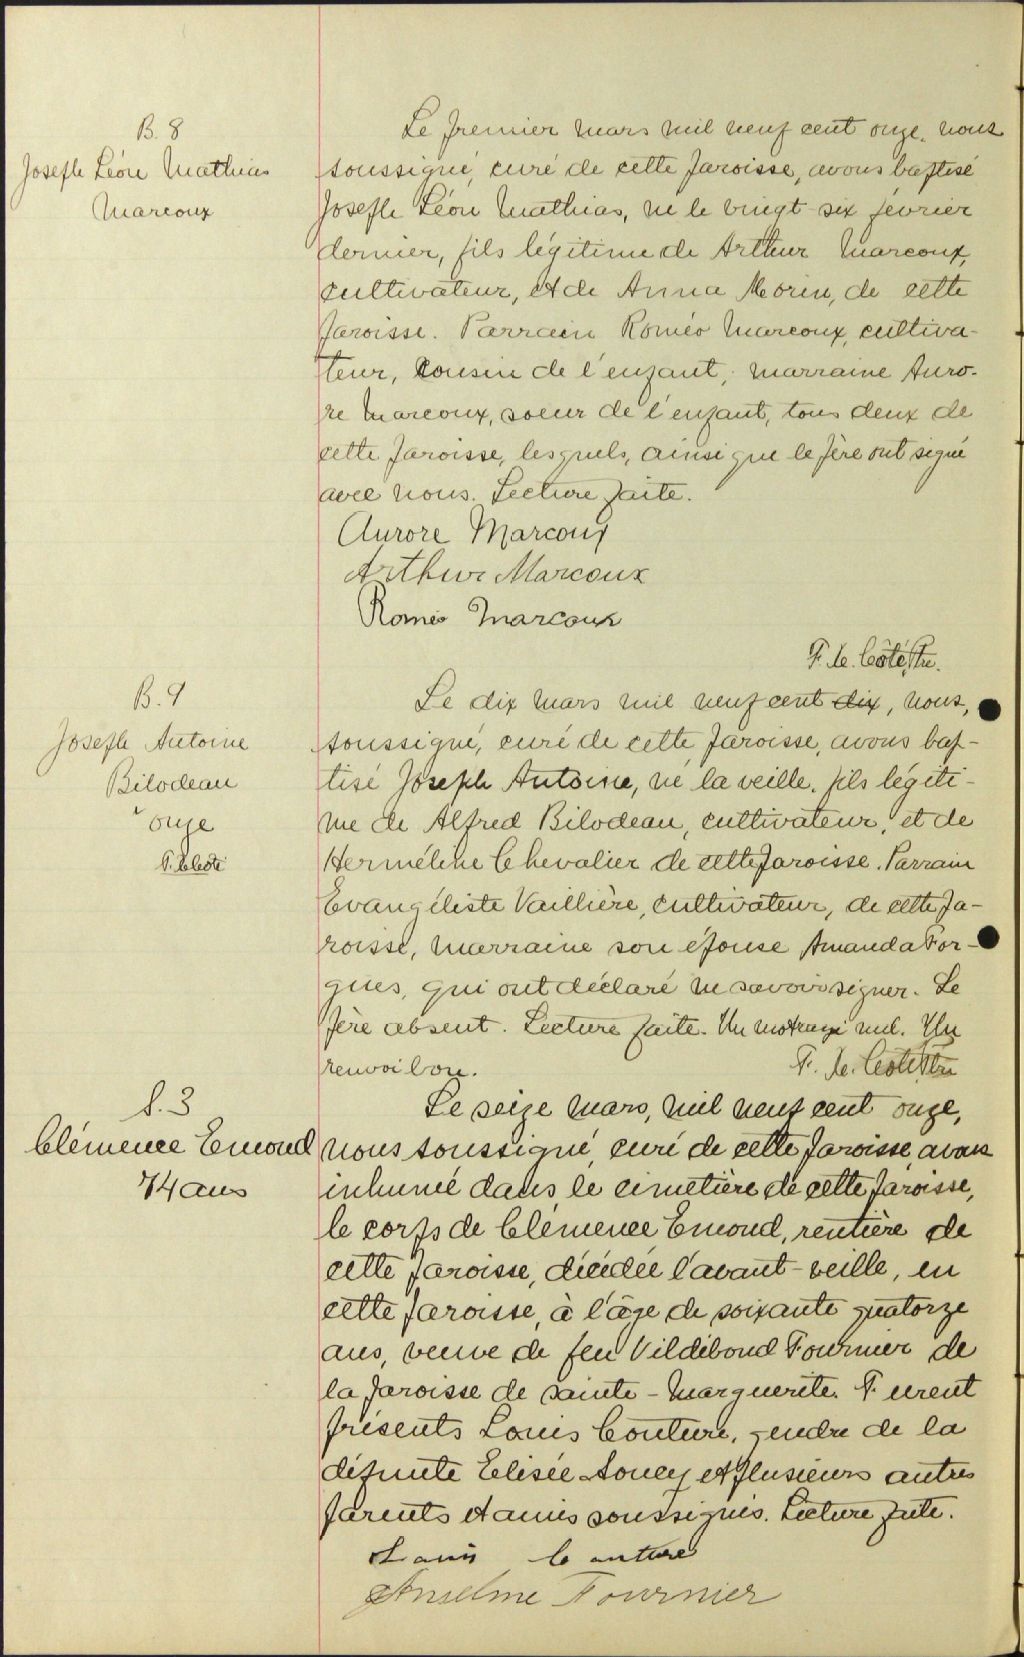 B. 8
Joseph Léon Mathias
Marcoux
Le premier mars mil neuf cent onze, nous
soussigné, curé de cette paroisse, avons baptisé
Joseph Léon Mathias, né le vingt-six février
dernier, fils légitime de Arthur Marcoux,
cultivateur, et de Anna Morin, de cette
paroisse. Parrain Roméo Marcoux, cultiva-
teur, cousin de l'enfant, marraine Auro-
re Marcoux, soeur de l'enfant, tous deux de
cette paroisse, lesquels, ainsi que le père ont signé
avec nous. Lecture faite.
Aurore Marcoux
Arthur Marcoux
Roméo Marcoux
F. X. Côté, Ptre.
B. 9
Joseph Antoine
Bilodeau
onze
F. X. Côté
Le dix mars mil neuf cent dix, nous,
soussigné, curé de cette paroisse, avons bap-
tisé Joseph Antoine, né la veille, fils légiti-
me de Alfred Bilodeau, cultivateur, et de
Herméline Chevalier de cette paroisse. Parrain
Evangéliste Vaillière, cultivateur, de cette pa-
roisse, marraine son épouse Amanda For-
gues, qui ont déclaré ne savoir signer. Le
père absent. Lecture faite. Un mot rayé nul. Un
renvoi bon.
F. X. Côté Ptre
S. 3
Clémence Emond
74 ans
Le seize mars, mil neuf cent onze,
nous soussigné, curé de cette paroisse, avons
inhumé dans le cimetière de cette paroisse,
le corps de Clémence Emond, rentière de
cette paroisse, décédée l'avant-veille, en
cette paroisse, à l'âge de soixante quatorze
ans, veuve de feu Vildébond Fournier de
la paroisse de Sainte-Marguerite. Furent
présents Louis Couture, gendre de la
défunte Elisée Soucy et plusieurs autres
parents et amis soussignés. Lecture faite.
Louis Couture
Anselme Fournier